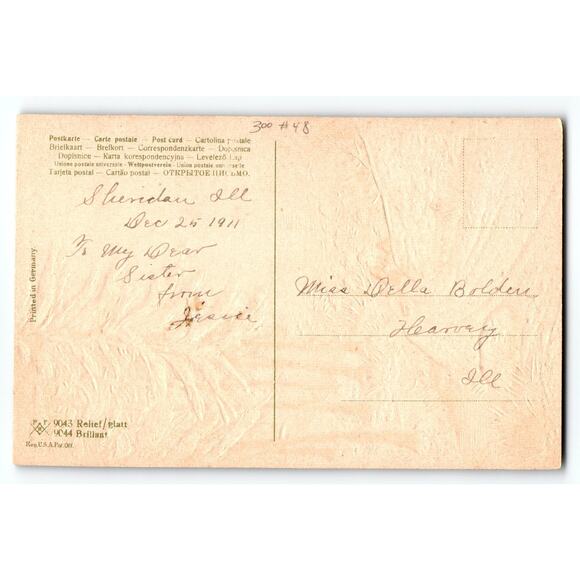 300 #48
Postkarte — Carte postale — Post card — Cartolina postale
Briefkaart — Brefkort — Correspondenzkarte — Dopisnica
Dopisnice — Karta korespondencyjna — Levelező Lap
Unione postale universale – Weltpostverein – Union postale universelle
Tarjeta postal — Cartão postal — ОТКРЫТОЕ ПИСЬМО.
Sheridan Ill
Dec 25 1911
To My Dear
Sister
from
Jessie
Miss Della Bolden
Harvey
Ill
Printed in Germany
P F B
9043 Relief/glatt
9044 Brillant
Reg. U.S.A. Pat. Off.